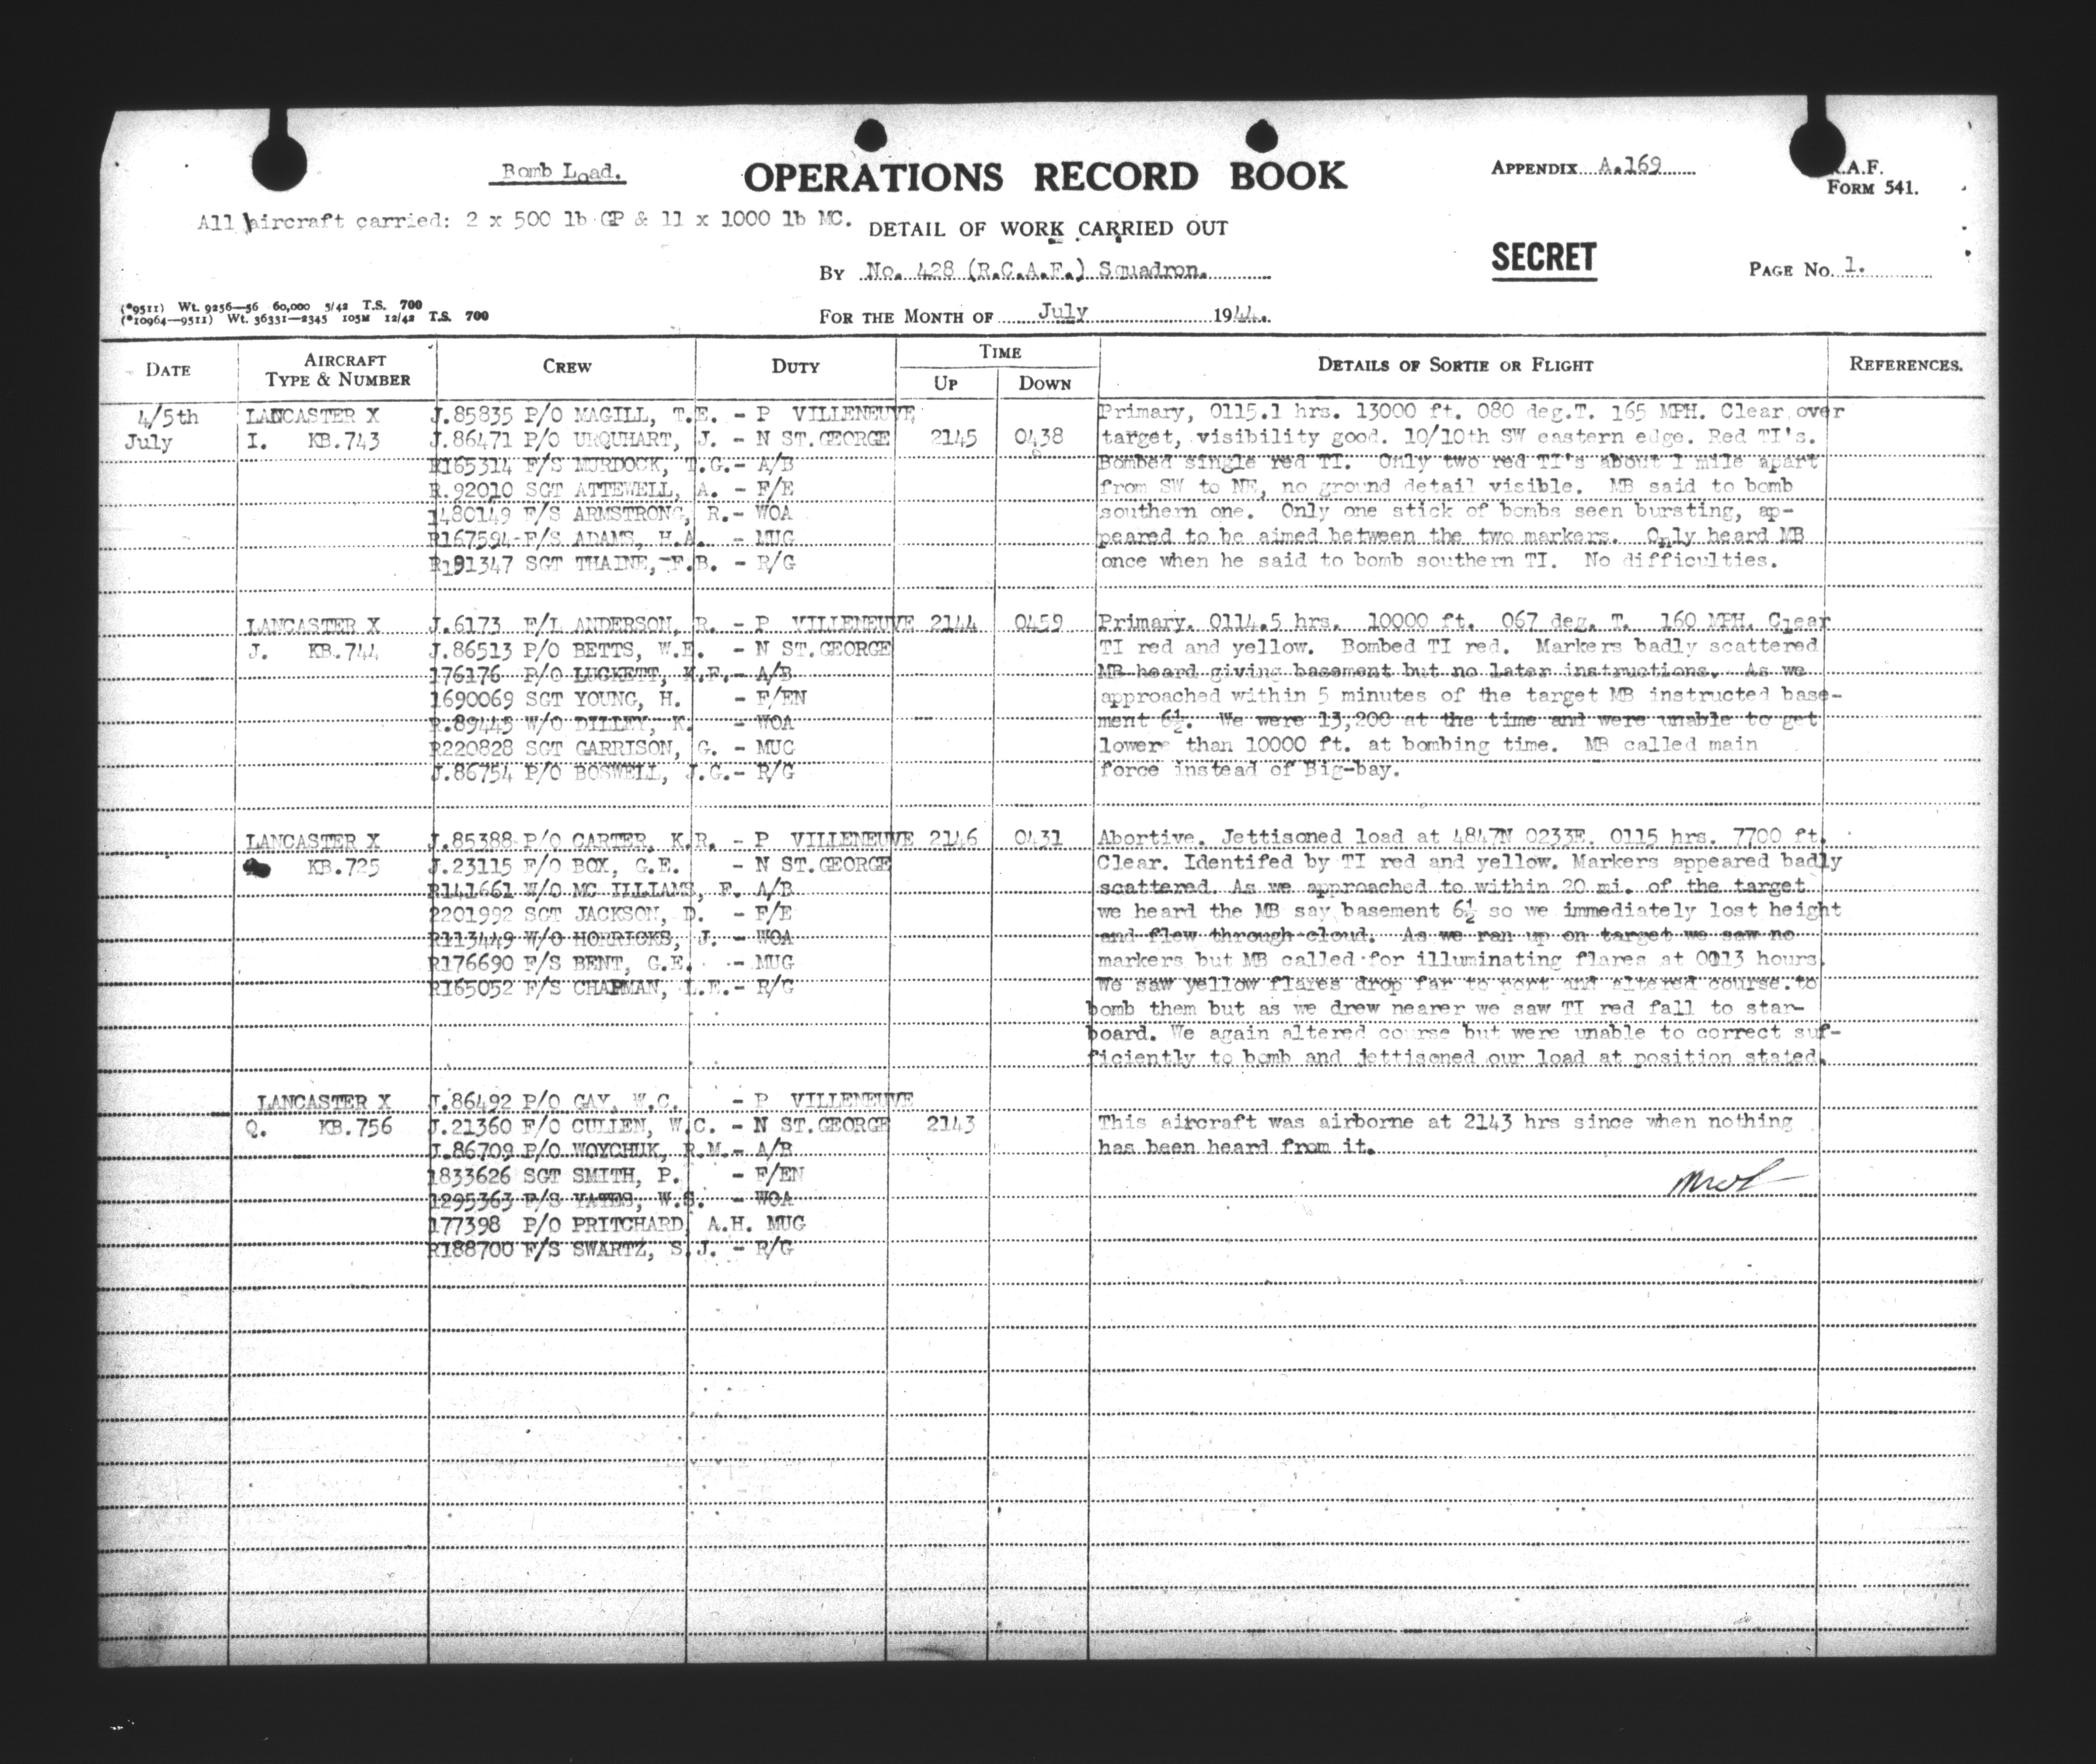 Bomb Load.
OPERATIONS RECORD BOOK
APPENDIX A.169
R.A.F.
FORM 541.
All aircraft carried: 2 x 500 lb GP & 11 x 1000 lb MC.
DETAIL OF WORK CARRIED OUT
SECRET
BY No. 428 (R.C.A.F.) Squadron.
PAGE No. 1.
(*9511) Wt. 9256—56 60,000 5/42 T.S. 700
(*10964—9511) Wt. 36331—2345 105M 12/42 T.S. 700
FOR THE MONTH OF July 1944.
DATE AIRCRAFT TYPE & NUMBER CREW DUTY TIME UP DOWN DETAILS OF SORTIE OR FLIGHT REFERENCES.
4/5th LANCASTER X J.85835 P/O MAGILL, T.E. - P VILLENEUVE, Primary, 0115.1 hrs. 13000 ft. 080 deg.T. 165 MPH. Clear over
July I. KB.743 J.86471 P/O URQUHART, J. - N ST.GEORGE 2145 0438 target, visibility good. 10/10th SW eastern edge. Red TI's.
R165314 F/S MURDOCK, T.G.- A/B Bombed single red TI. Only two red TI's about 1 mile apart
R.92010 SGT ATTEWELL, A. - F/E from SW to NE, no ground detail visible. MB said to bomb
1480149 F/S ARMSTRONG, R.- WOA southern one. Only one stick of bombs seen bursting, ap-
R167594 F/S ADAMS, H.A. - MUG peared to be aimed between the two markers. Only heard MB
R191347 SGT THAINE, F.B. - R/G once when he said to bomb southern TI. No difficulties.
LANCASTER X J.6173 F/L ANDERSON, R. - P VILLENEUVE 2144 0459 Primary. 0114.5 hrs. 10000 ft. 067 deg. T. 160 MPH. Clear
J. KB.744 J.86513 P/O BETTS, W.E. - N ST.GEORGE TI red and yellow. Bombed TI red. Markers badly scattered
176176 P/O LUCKETT, K.F.- A/B MB heard giving basement but no later instructions. As we
1690069 SGT YOUNG, H. - F/EN approached within 5 minutes of the target MB instructed base-
R.89445 W/O DILLEY, K. - WOA ment 6½. We were 13,200 at the time and were unable to get
R220828 SGT GARRISON, G. - MUG lower than 10000 ft. at bombing time. MB called main
J.86754 P/O BOSWELL, J.G.- R/G force instead of Big-bay.
LANCASTER X J.85388 P/O CARTER, K.R. - P VILLENEUVE 2146 0431 Abortive. Jettisoned load at 4847N 0233E. 0115 hrs. 7700 ft.
KB.725 J.23115 F/O BOX, G.E. - N ST.GEORGE Clear. Identifed by TI red and yellow. Markers appeared badly
R141661 W/O MC ILLIAMS, F. A/B scattered. As we approached to within 20 mi. of the target
2201992 SGT JACKSON, D. - F/E we heard the MB say basement 6½ so we immediately lost height
R113449 W/O HORRICKS, J. - WOA and flew through cloud. As we ran up on target we saw no
R176690 F/S BENT, G.E. - MUG markers but MB called for illuminating flares at 0013 hours.
R165052 F/S CHAPMAN, L.E.- R/G We saw yellow flares drop far to port and altered course to
bomb them but as we drew nearer we saw TI red fall to star-
board. We again altered course but were unable to correct suf-
ficiently to bomb and jettisoned our load at position stated.
LANCASTER X J.86492 P/O GAY, W.C. - P VILLENEUVE
Q. KB.756 J.21360 F/O CULLEN, W.C. - N ST.GEORGE 2143 This aircraft was airborne at 2143 hrs since when nothing
J.86709 P/O WOYCHUK, R.M.- A/B has been heard from it.
1833626 SGT SMITH, P. - F/EN
1295363 F/S YATES, W.S. - WOA
177398 P/O PRITCHARD, A.H. MUG
R188700 F/S SWARTZ, S.J. - R/G